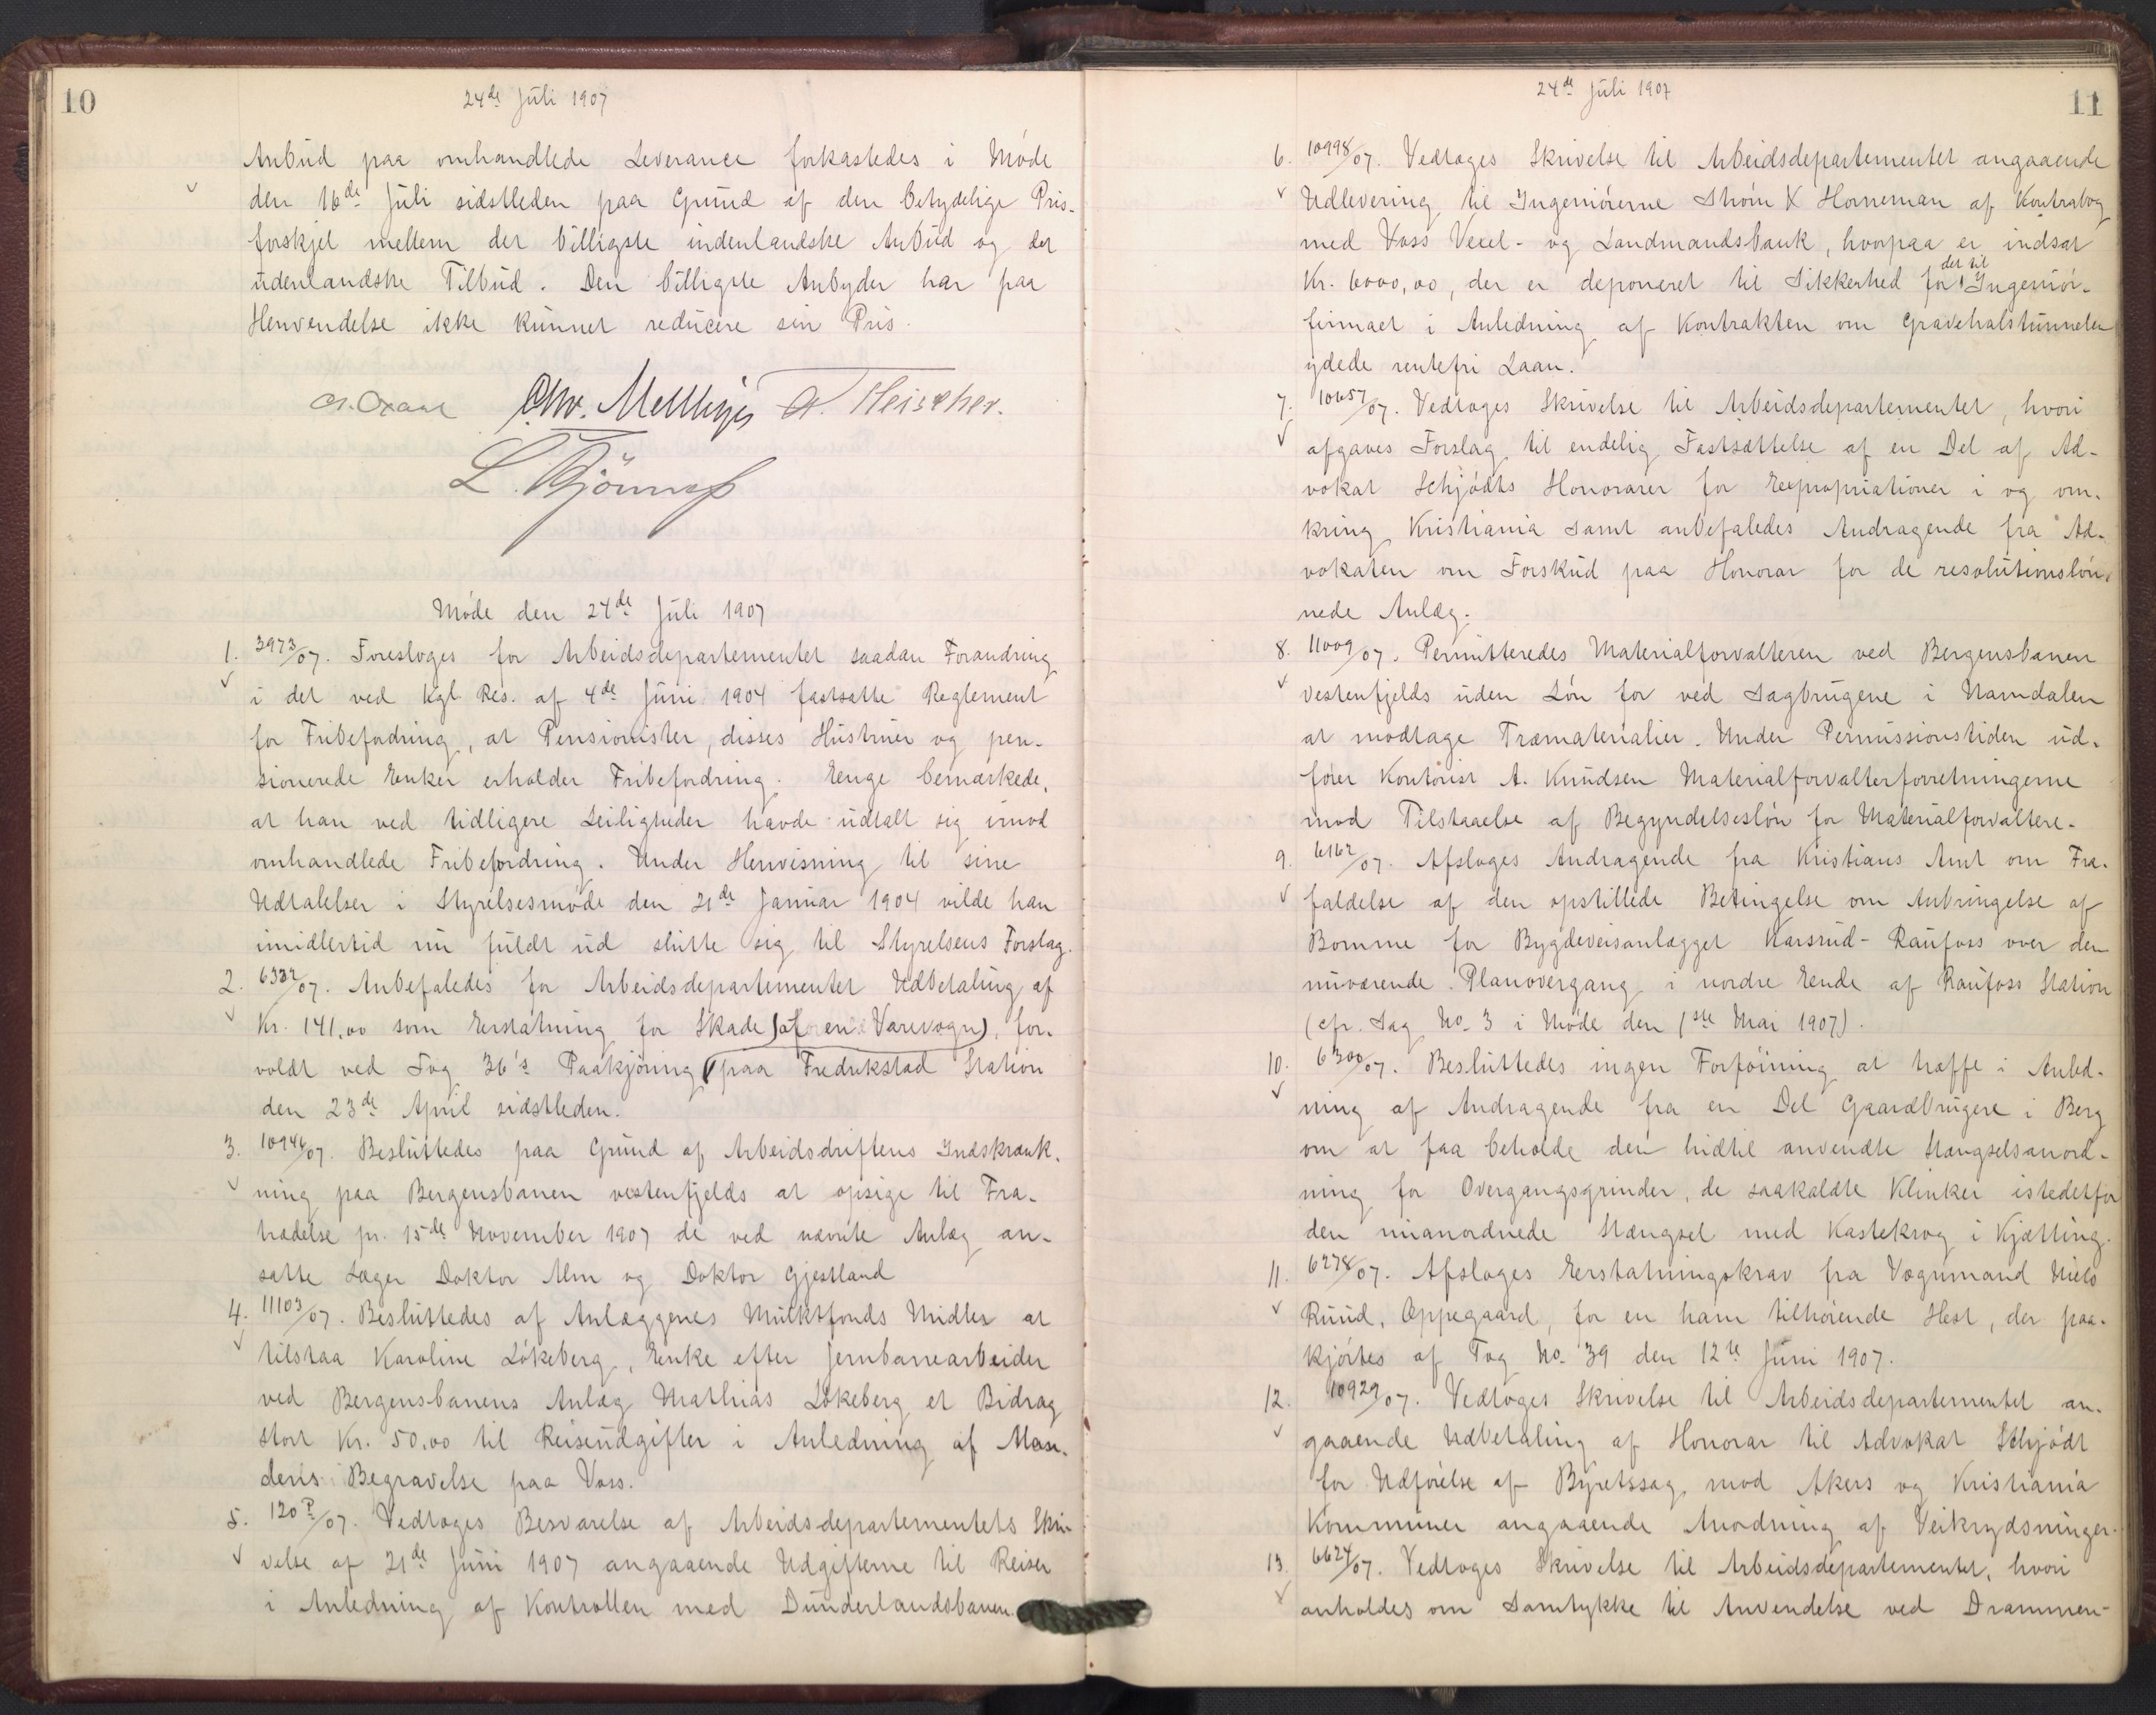 10
24de Juli 1907
Anbud paa omhandlede Leverance forkastedes i Møde
den 16de Juli sidstleden paa Grund af den betydelige Pris-
forskjel mellem det billigste indenlandske Anbud og det
udenlandske Tilbud. Den billigste Anbyder har paa
Henvendelse ikke kunnet reducere sin Pris.
Møde den 24de Juli 1907
1. 3973/07. Foresloges for Arbeidsdepartementet saadan Forandring
i det ved Kgl. Res. af 4de Juni 1904 fastsatte Reglement
for Fribefordring, at Pensionister, disses Hustruer og pen-
sionerede Enker erholder Fribefordring. Eenge bemærkede,
at han ved tidligere Leiligheder havde udtalt sig imod
omhandlede Fribefordring. Under Henvisning til sine
Udtalelser i Styrelsesmøde den 21de Januar 1904 vilde han
imidlertid nu fuldt ud slutte sig til Styrelsens Forslag.
2. 6332/07. Anbefaledes for Arbeidsdepartementet Udbetaling af
Kr. 141,00 som Erstatning for Skade (af en Varevogn), for-
voldt ved Tog 36's Paakjøring paa Fredrikstad Station
den 23de April sidstleden.
3. 10946/07. Besluttedes paa Grund af Arbeidsdriftens Indskrænk-
ning paa Bergensbanen vestenfjelds at opsige til Fra-
trædelse pr. 15de November 1907 de ved nævnte Anlæg an-
satte Læger Doktor Alm og Doktor Gjestland
4. 11103/07. Besluttedes af Anlæggenes Mulktfonds Midler at
tilstaa Karoline Løkeberg, Enke efter Jernbanearbeider
ved Bergensbanens Anlæg Mathias Løkeberg et Bidrag
stort Kr. 50,00 til Reiseudgifter i Anledning af Man-
dens Begravelse paa Voss.
5. 120P/07. Vedtoges Besvarelse af Arbeidsdepartementets Skri-
velse af 21de Juni 1907 angaaende Udgifterne til Reiser
i Anledning af Kontrollen med Dunderlandsbanen.
24de Juli 1907
11
6. 10998/07. Vedtoges Skrivelse til Arbeidsdepartementet angaaende
Udlevering til Ingeniørerne Strøm & Horneman af Kontrabog
med Voss Vexel- og Landmandsbank, hvorpaa er indsat
Kr. 6000,00, der er deponeret til Sikkerhed for det til Ingeniør-
firmaet i Anledning af Kontrakten om Gravehalstunnelen
ydede rentefri Laan.
7. 10657/07. Vedtoges Skrivelse til Arbeidsdepartementet, hvori
afgaves Forslag til endelig Fastsættelse af en Del af Ad-
vokat Schjødts Honorarer for Expropriationer i og om-
kring Kristiania samt anbefaledes Andragende fra Ad-
vokaten om Forskud paa Honorar for de resolutionsløn-
nede Anlæg.
8. 11009/07. Permitteredes Materialforvalteren ved Bergensbanen
vestenfjelds uden Løn for ved Sagbrugene i Namdalen
at modtage Træmaterialier. Under Permissionstiden ud-
fører Kontorist A. Knudsen Materialforvalterforretningerne
mod Tilstaaelse af Begyndelsesløn for Materialforvaltere.
9. 6162/07. Afsloges Andragende fra Kristians Amt om Fra-
faldelse af den opstillede Betingelse om Anbringelse af
Bomme for Bygdeveisanlægget Karsrud-Raufoss over den
nuværende Planovergang i nordre Ende af Raufoss Station
(cfr. Sag No. 3 i Møde den 1ste Mai 1907).
10. 6300/07. Besluttedes ingen Forføining at træffe i Anled-
ning af Andragende fra en Del Gaardbrugere i Berg
om at faa beholde den hidtil anvendte Stængselsanord-
ning for Overgangsgrinder, de saakaldte Klinker istedetfor
den nuanordnede Stængsel med Kastekrog i Kjætting.
11. 6278/07. Afsloges Erstatningskrav fra Vognmand Niels
Ruud, Oppegaard, for en ham tilhørende Hest, der paa-
kjørtes af Tog No. 39 den 12te Juni 1907.
12. 10929/07. Vedtoges Skrivelse til Arbeidsdepartementet an-
gaaende Udbetaling af Honorar til Advokat Schjødt
for Udførelse af Byretssag mod Akers og Kristiania
Kommuner angaaende Anordning af Veikrydsninger.
13. 6624/07. Vedtoges Skrivelse til Arbeidsdepartementet, hvori
anholdes om Samtykke til Anvendelse ved Drammen-